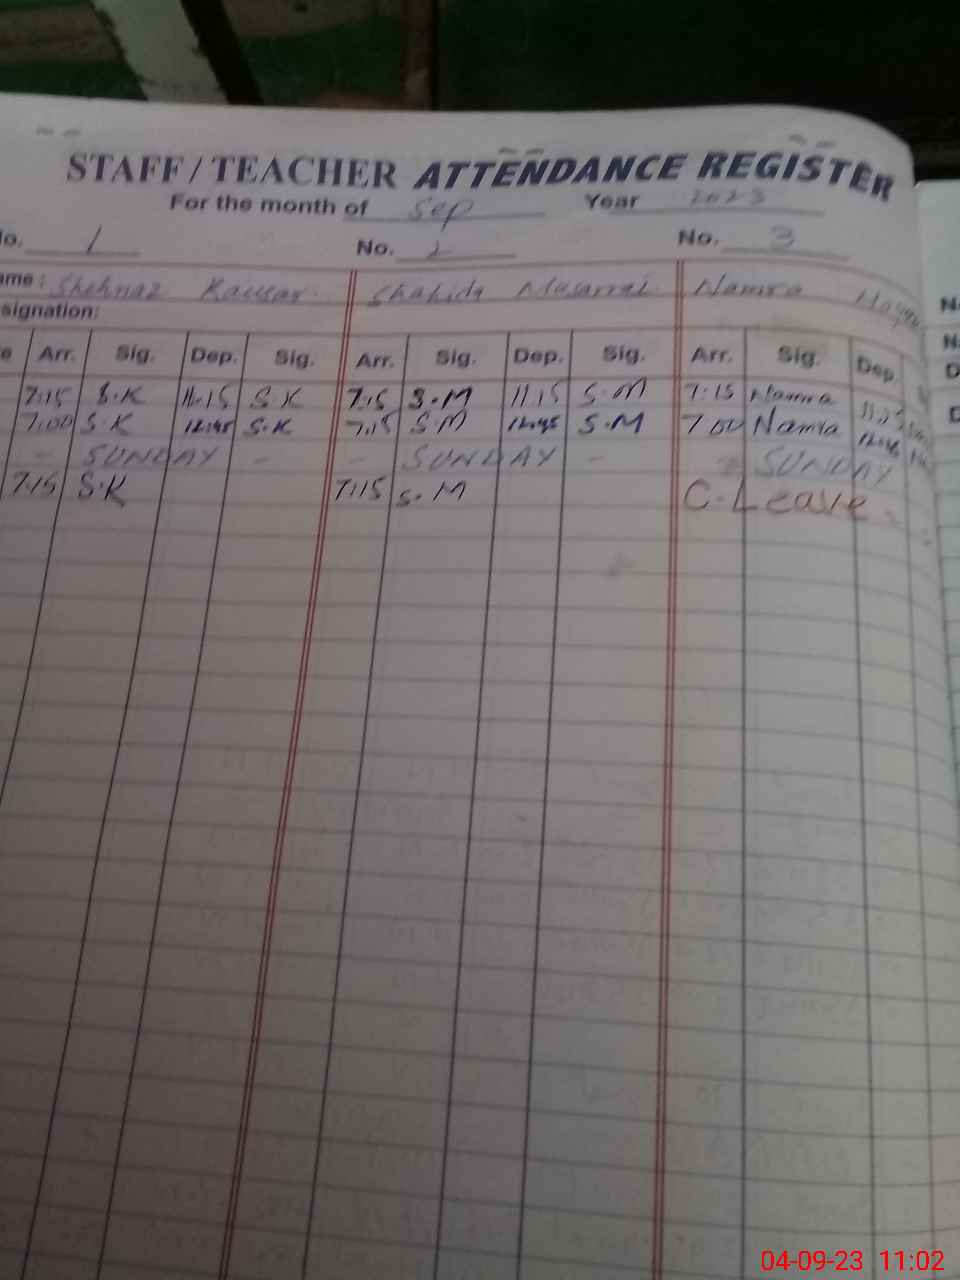 STAFF/TEACHER ATTENDANCE REGISTER
For the month of Sep Year 2023
No. 1 No. 2 No. 3
ame: Shehnaz Kausar Shahida Masarrat Namra
signation:
e Arr. Sig. Dep. Sig. Arr. Sig. Dep. Sig. Arr. Sig. Dep.
7:15 S.K 11.15 S.K 7:15 S.M 11.15 S.M 7:15 Namra
7:00 S.K 12.45 S.K 7:15 S.M 12.45 S.M 7 00 Namra 12.45
- SUNDAY - - SUNDAY - SUNDAY
7:15 S.K 7:15 S.M C.Leave
04-09-23 11:02